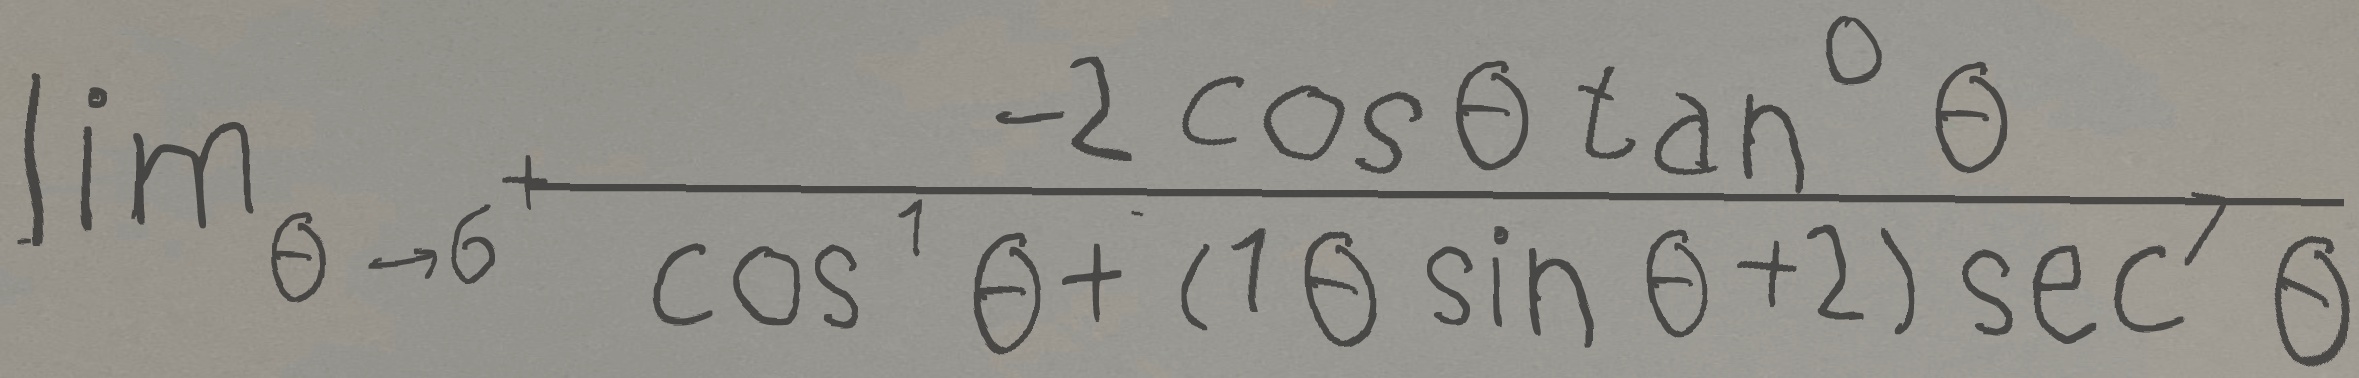 \lim_{\theta \to 6^{+}} \frac{-2 \cos \theta \tan^{0} \theta}{\cos^{1} \theta + (1 \theta \sin \theta + 2) \sec^{7} \theta}